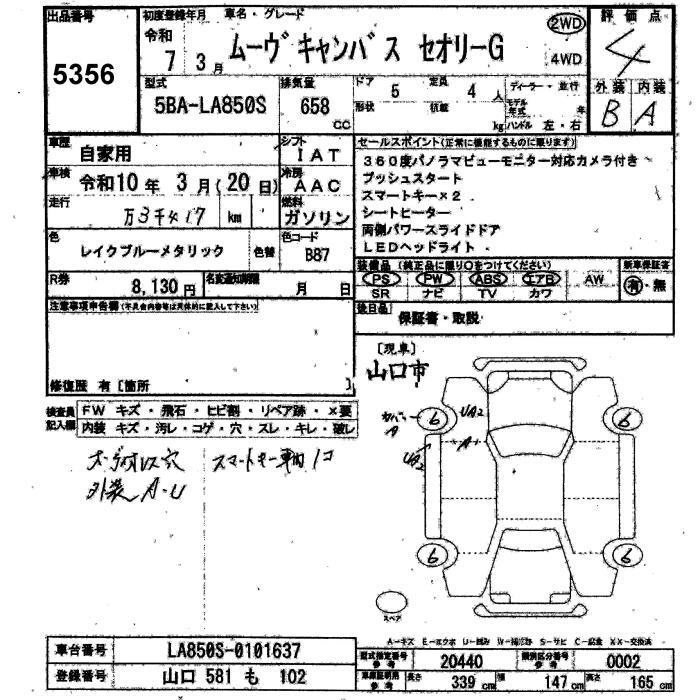 出品番号 初度登録年月 車名・グレード 2WD 評価点
5356 令和 7 3月 ムーヴキャンバス セオリーG 4WD 4
型式 排気量 ドア 5 定員 4人 ディーラー・並行 外装 内装
5BA-LA850S 658 cc 形状 積載 kg モデル年式 年 ハンドル 左・右 B A
車歴 自家用 シフト IAT セールスポイント(正常に機能するものに限ります)
車検 令和10年 3月(20日) 冷房 AAC 360度パノラマビューモニター対応カメラ付き
プッシュスタート
走行 万3千417 km 燃料 ガソリン スマートキー×2
シートヒーター
色 レイクブルーメタリック 色替 色コード B87 両側パワースライドドア
LEDヘッドライト
装備品(純正品に限り○をつけてください) 新車保証書
R券 8,130円 名変通知期限 月 日 PS PW ABS エアB AW 有・無
SR ナビ TV カワ
注意事項申告欄(不具合内容等は具体的に記入して下さい) 後日品 保証書・取説
[現車]
山口市
修復歴 有[箇所 ]
検査員記入欄 FW キズ・飛石・ヒビ割・リペア跡・×要
内装 キズ・汚レ・コゲ・穴・スレ・キレ・破レ
カバー A 6 UA2 6
A1
UA2
スマートキー車内1コ
外装 A-U
6 6
スペア
A-キズ E-エクボ U-凹み W-補修跡 S-サビ C-腐食 XX-交換済
車台番号 LA850S-0101637 型式指定番号 参考 20440 類別区分番号 参考 0002
登録番号 山口 581 も 102 車庫証明用 参考 長さ 339cm 幅 147cm 高さ 165cm